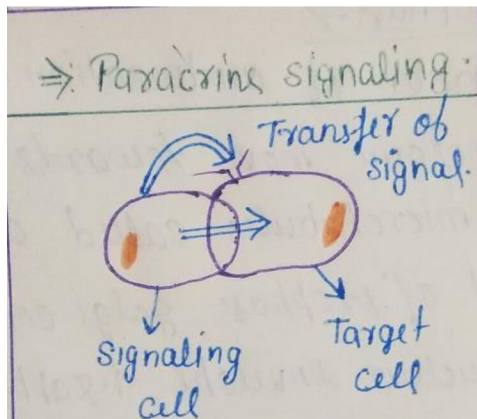 ⇒: Paracrine signaling.
Transfer of
signal.
Signaling
cell
Target
cell